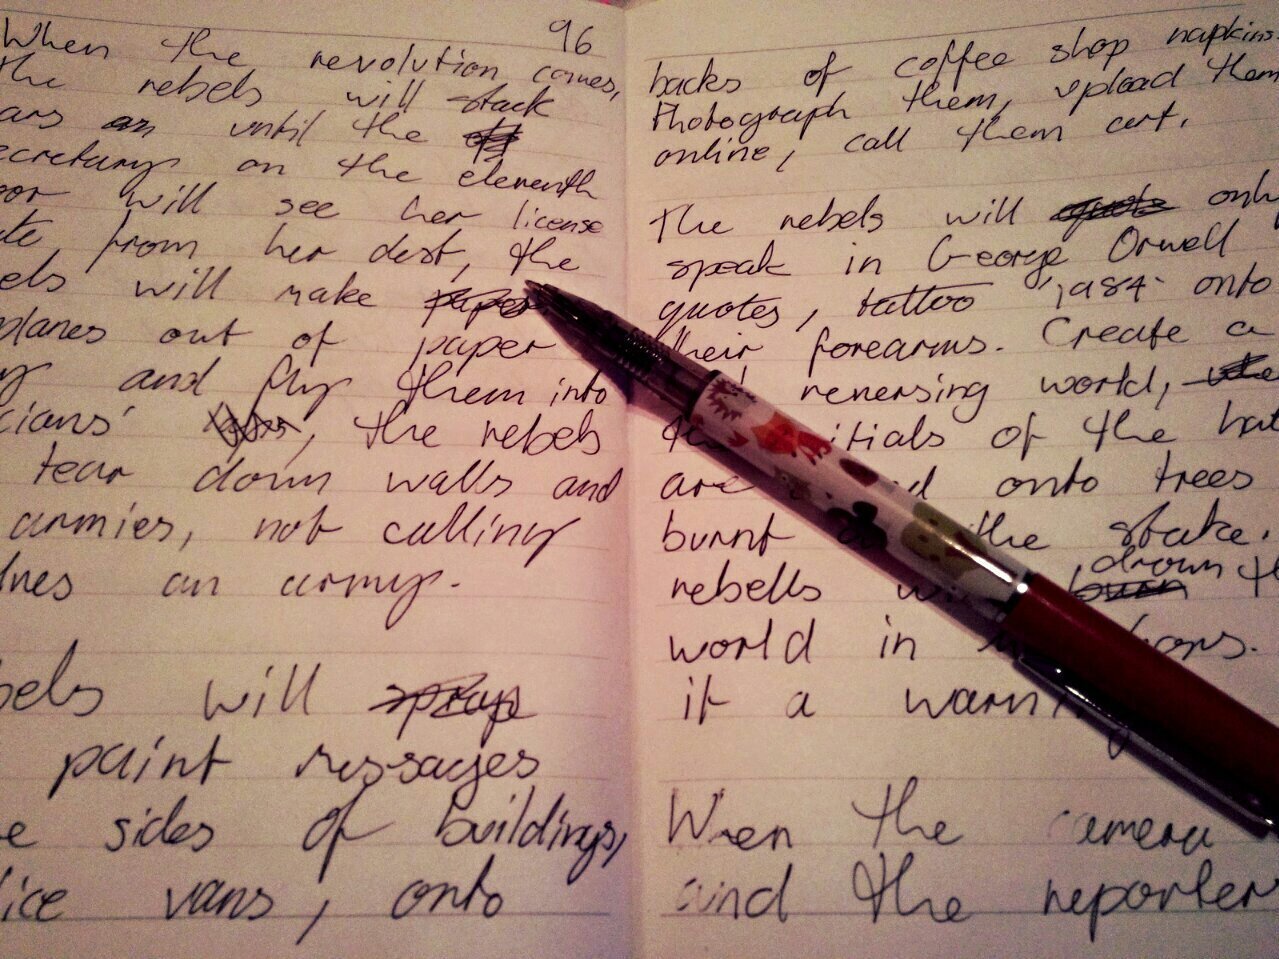 96
When the revolution comes,
the rebels will stack
ars an until the
ecretary on the eleventh
oor will see her license
te from her desk, the
els will make paper
planes out of paper
y and fly them into
cians' , the rebels
tear down walls and
armies, not calling
lnes an army.
bels will sprays
paint messages
e sides of buildings,
lice vans, onto
backs of coffee shop napkins.
Photograph them, upload them
online, call them art.
The rebels will quote onl
speak in George Orwell
quotes, tattoo '1984' onto
their forearms. Create a
reversing world,
the itials of the hat
are d onto trees
burnt the stake.
rebells w burn drown th
world in ops.
it a warning
When the camera
and the reporters